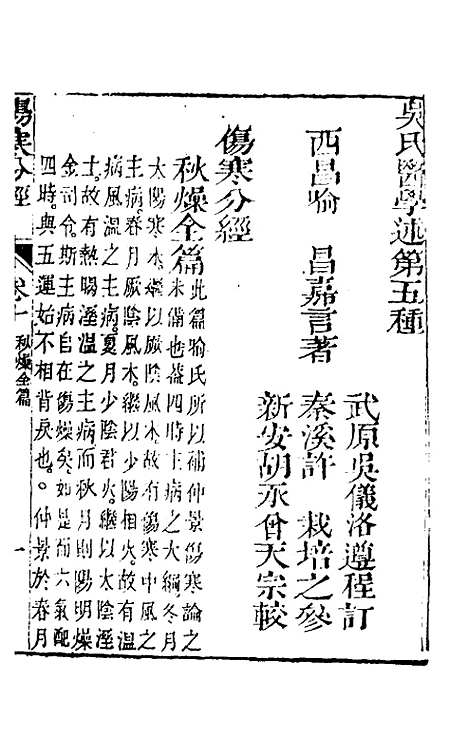 吳氏醫學述第五種
西昌喻 昌嘉言著
武原吳儀洛遵程訂
秦溪許 栽培之參
新安胡永會天宗較
傷寒分經
秋燥全篇此篇喻氏所以補仲景傷寒論之
未備也葢四時主病之大綱冬月
太陽寒水繼以厥陰風木故有傷寒中風之
主病春月厥陰風木繼以少陽相火故有溫
病風溫之主病夏月少陰君火繼以太陰溼
土故有熱暍溼溫之主病而秋月則陽明燥
金司令斯主病自在傷燥矣如是而六氣配
四時與五運始不相背戾也○仲景於春月
傷寒分經
卷十
秋燥全篇
一